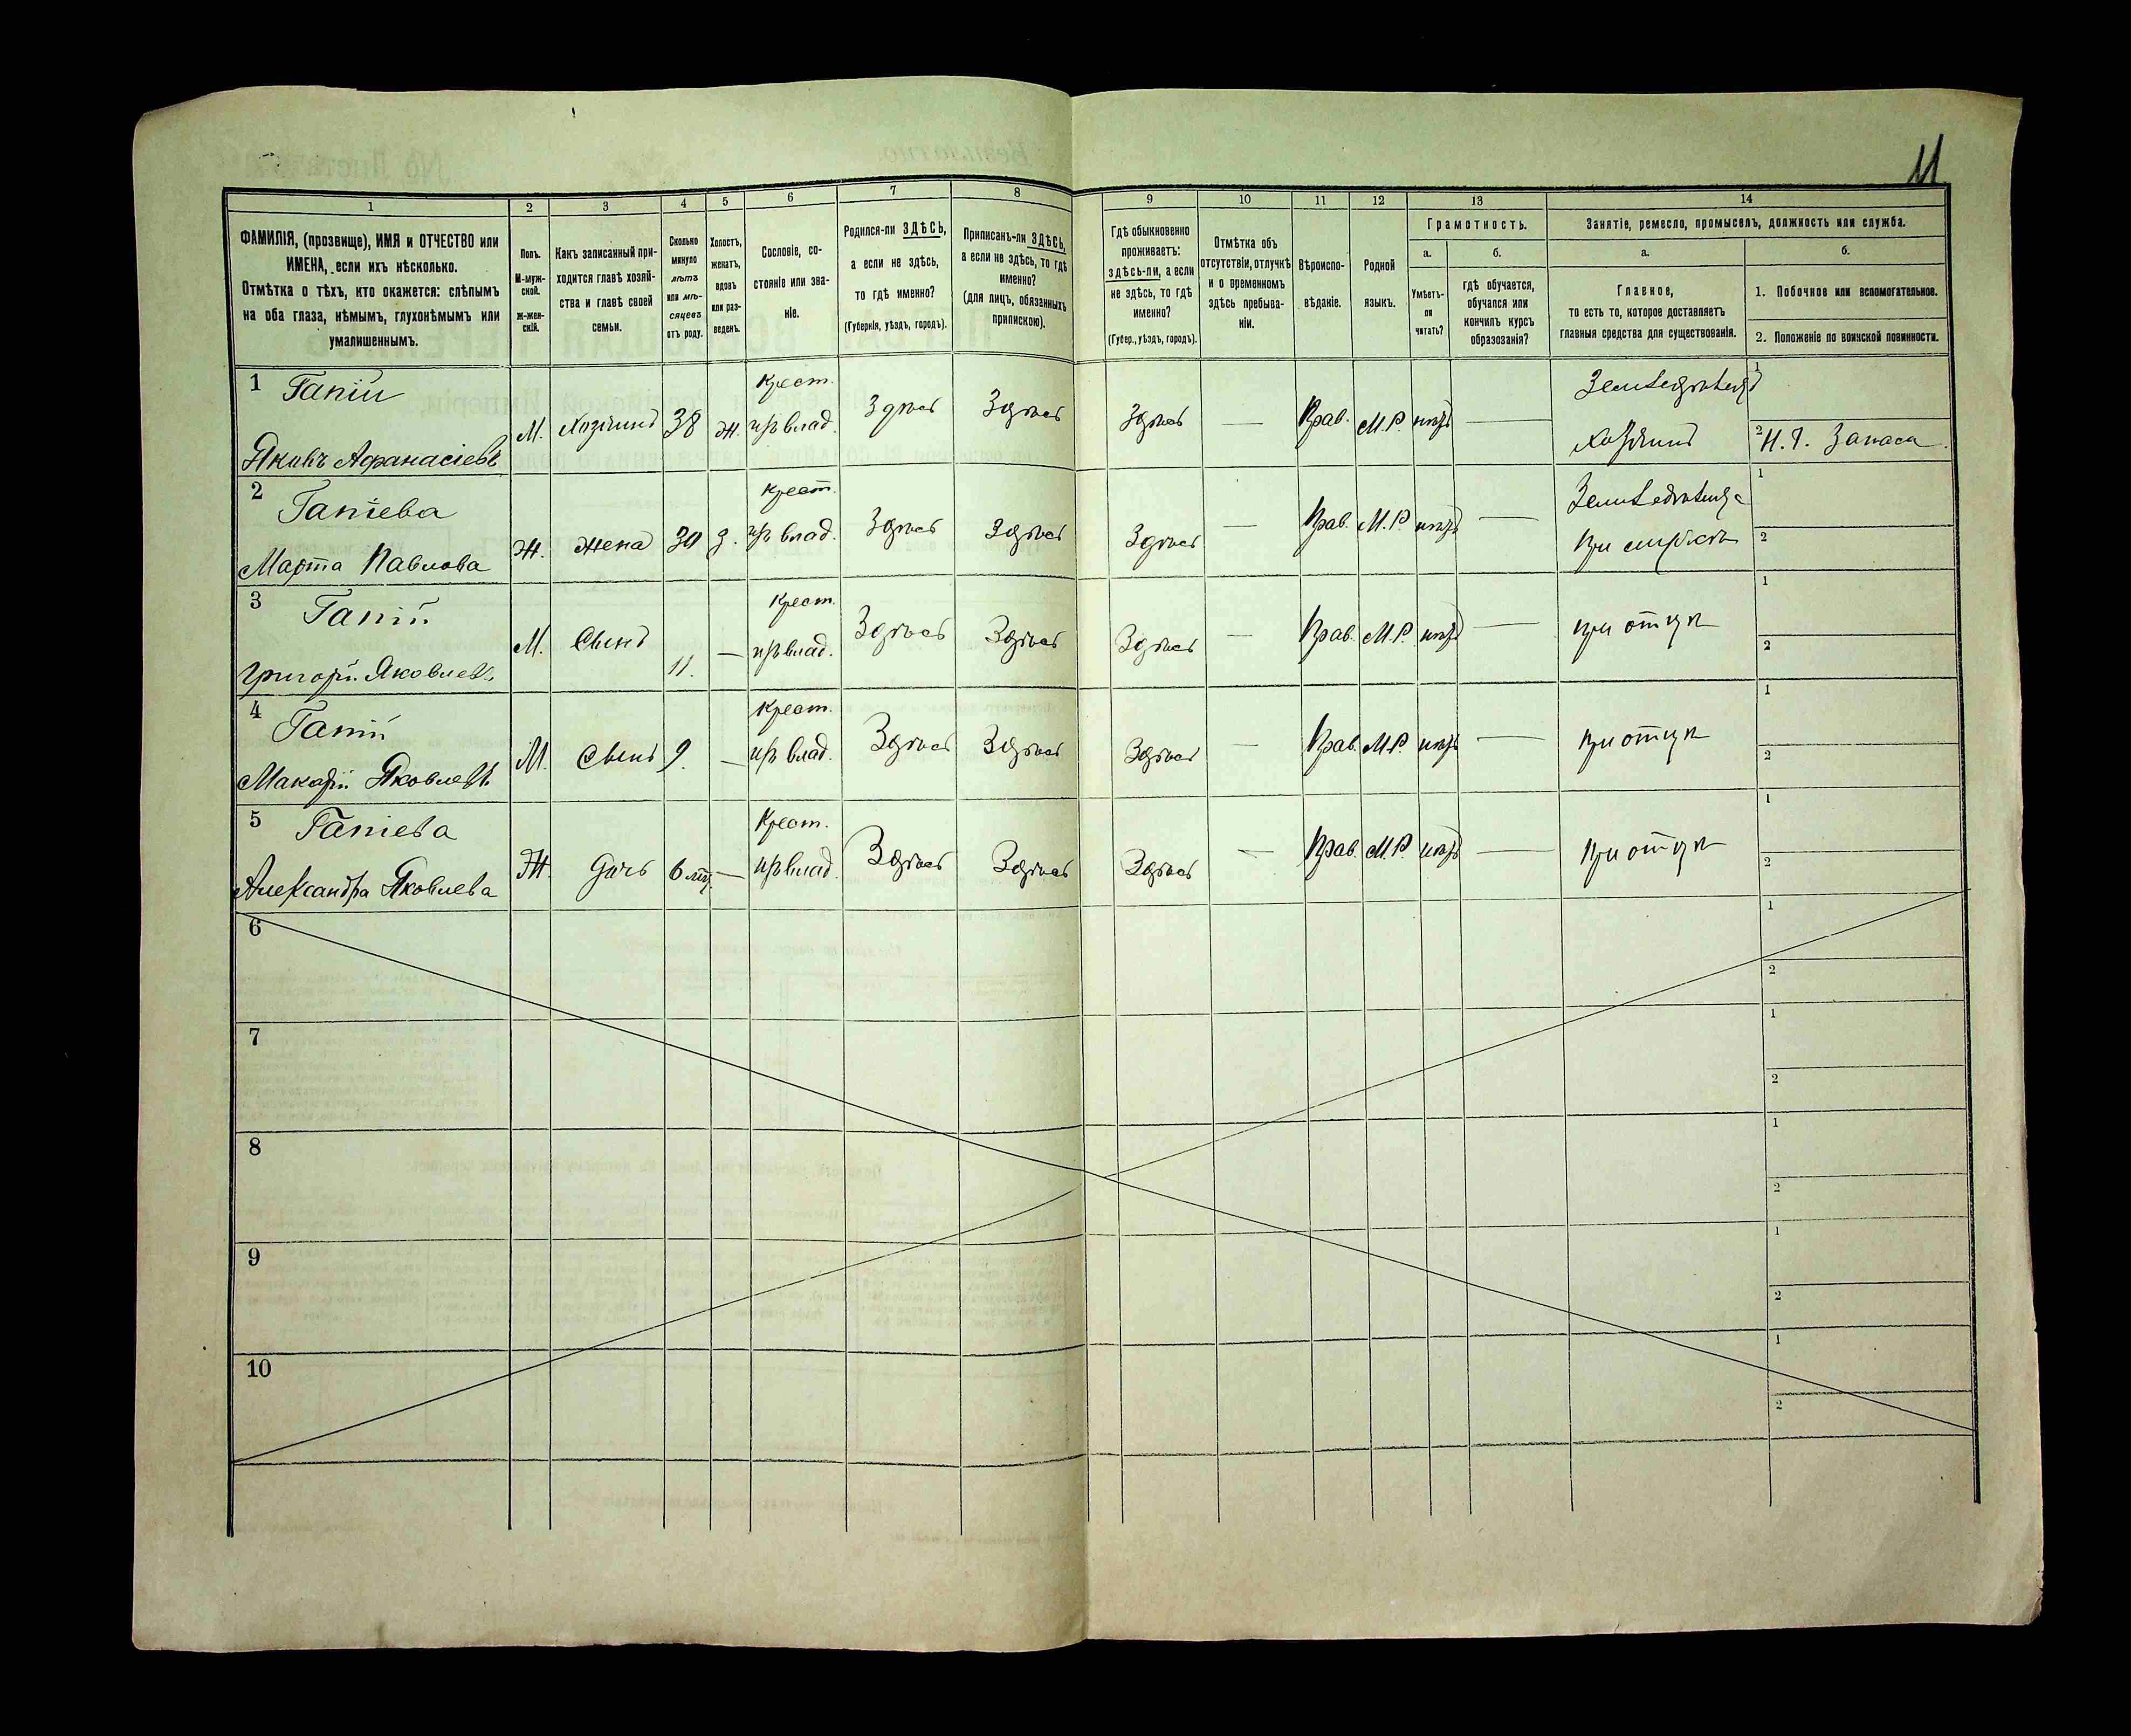 11
1 2 3 4 5 6 7 8 9 10 11 12 13 14
ФАМИЛІЯ, (прозвище), ИМЯ и ОТЧЕСТВО или
ИМЕНА, если ихъ нѣсколько.
Отмѣтка о тѣхъ, кто окажется: слѣпымъ
на оба глаза, нѣмымъ, глухонѣмымъ или
умалишеннымъ.
Полъ.
М-муж-
ской.
Ж-жен-
скій.
Какъ записанный при-
ходится главѣ хозяй-
ства и главѣ своей
семьи.
Сколько
минуло
лѣтъ
или мѣ-
сяцевъ
отъ роду.
Холостъ,
женатъ,
вдовъ
или раз-
веденъ.
Сословіе, со-
стояніе или зва-
ніе.
Родился-ли ЗДѢСЬ,
а если не здѣсь,
то гдѣ именно?
(Губернія, уѣздъ, городъ).
Приписанъ-ли ЗДѢСЬ,
а если не здѣсь, то гдѣ
именно?
(для лицъ, обязанныхъ
припискою).
Гдѣ обыкновенно
проживаетъ:
здѣсь-ли, а если
не здѣсь, то гдѣ
именно?
(Губер., уѣздъ, городъ).
Отмѣтка объ
отсутствіи, отлучкѣ
и о временномъ
здѣсь пребыва-
ніи.
Вѣроиспо-
вѣданіе.
Родной
языкъ.
Грамотность.
а.
Умѣетъ-
ли
читать?
б.
гдѣ обучается,
обучался или
кончилъ курсъ
образованія?
Занятіе, ремесло, промыселъ, должность или служба.
а.
Главное,
то есть то, которое доставляетъ
главныя средства для существованія.
б.
1. Побочное или вспомогательное.
2. Положеніе по воинской повинности.
1 Гапій Крест. Земледѣлецъ 1
Яковъ Афанасіевъ М. Хозяинъ 38 Ж. изъ влад. Здѣсь Здѣсь Здѣсь — Прав. М.Р. нѣтъ — Хозяинъ 2 Н. Р. Запаса
2 Гапіева Крест. 1
Марта Павлова Ж. Жена 30 З. изъ влад. Здѣсь Здѣсь Здѣсь — Прав. М.Р. нѣтъ — При 2
3 Гапій Крест. 1
Григорій Яковлевъ М. Сынъ 11. — изъ влад. Здѣсь Здѣсь Здѣсь — Прав. М.Р. нѣтъ — при отцѣ 2
4 Гапій Крест. 1
Макарій Яковлевъ М. Сынъ 9. — изъ влад. Здѣсь Здѣсь Здѣсь — Прав. М.Р. нѣтъ — при отцѣ 2
5 Гапіева Крест. 1
Александра Яковлева Ж. дочь 6 мц. — изъ влад. Здѣсь Здѣсь Здѣсь — Прав. М.Р. нѣтъ — при отцѣ 2
6 1
2
7 1
2
8 1
2
9 1
2
10 1
2